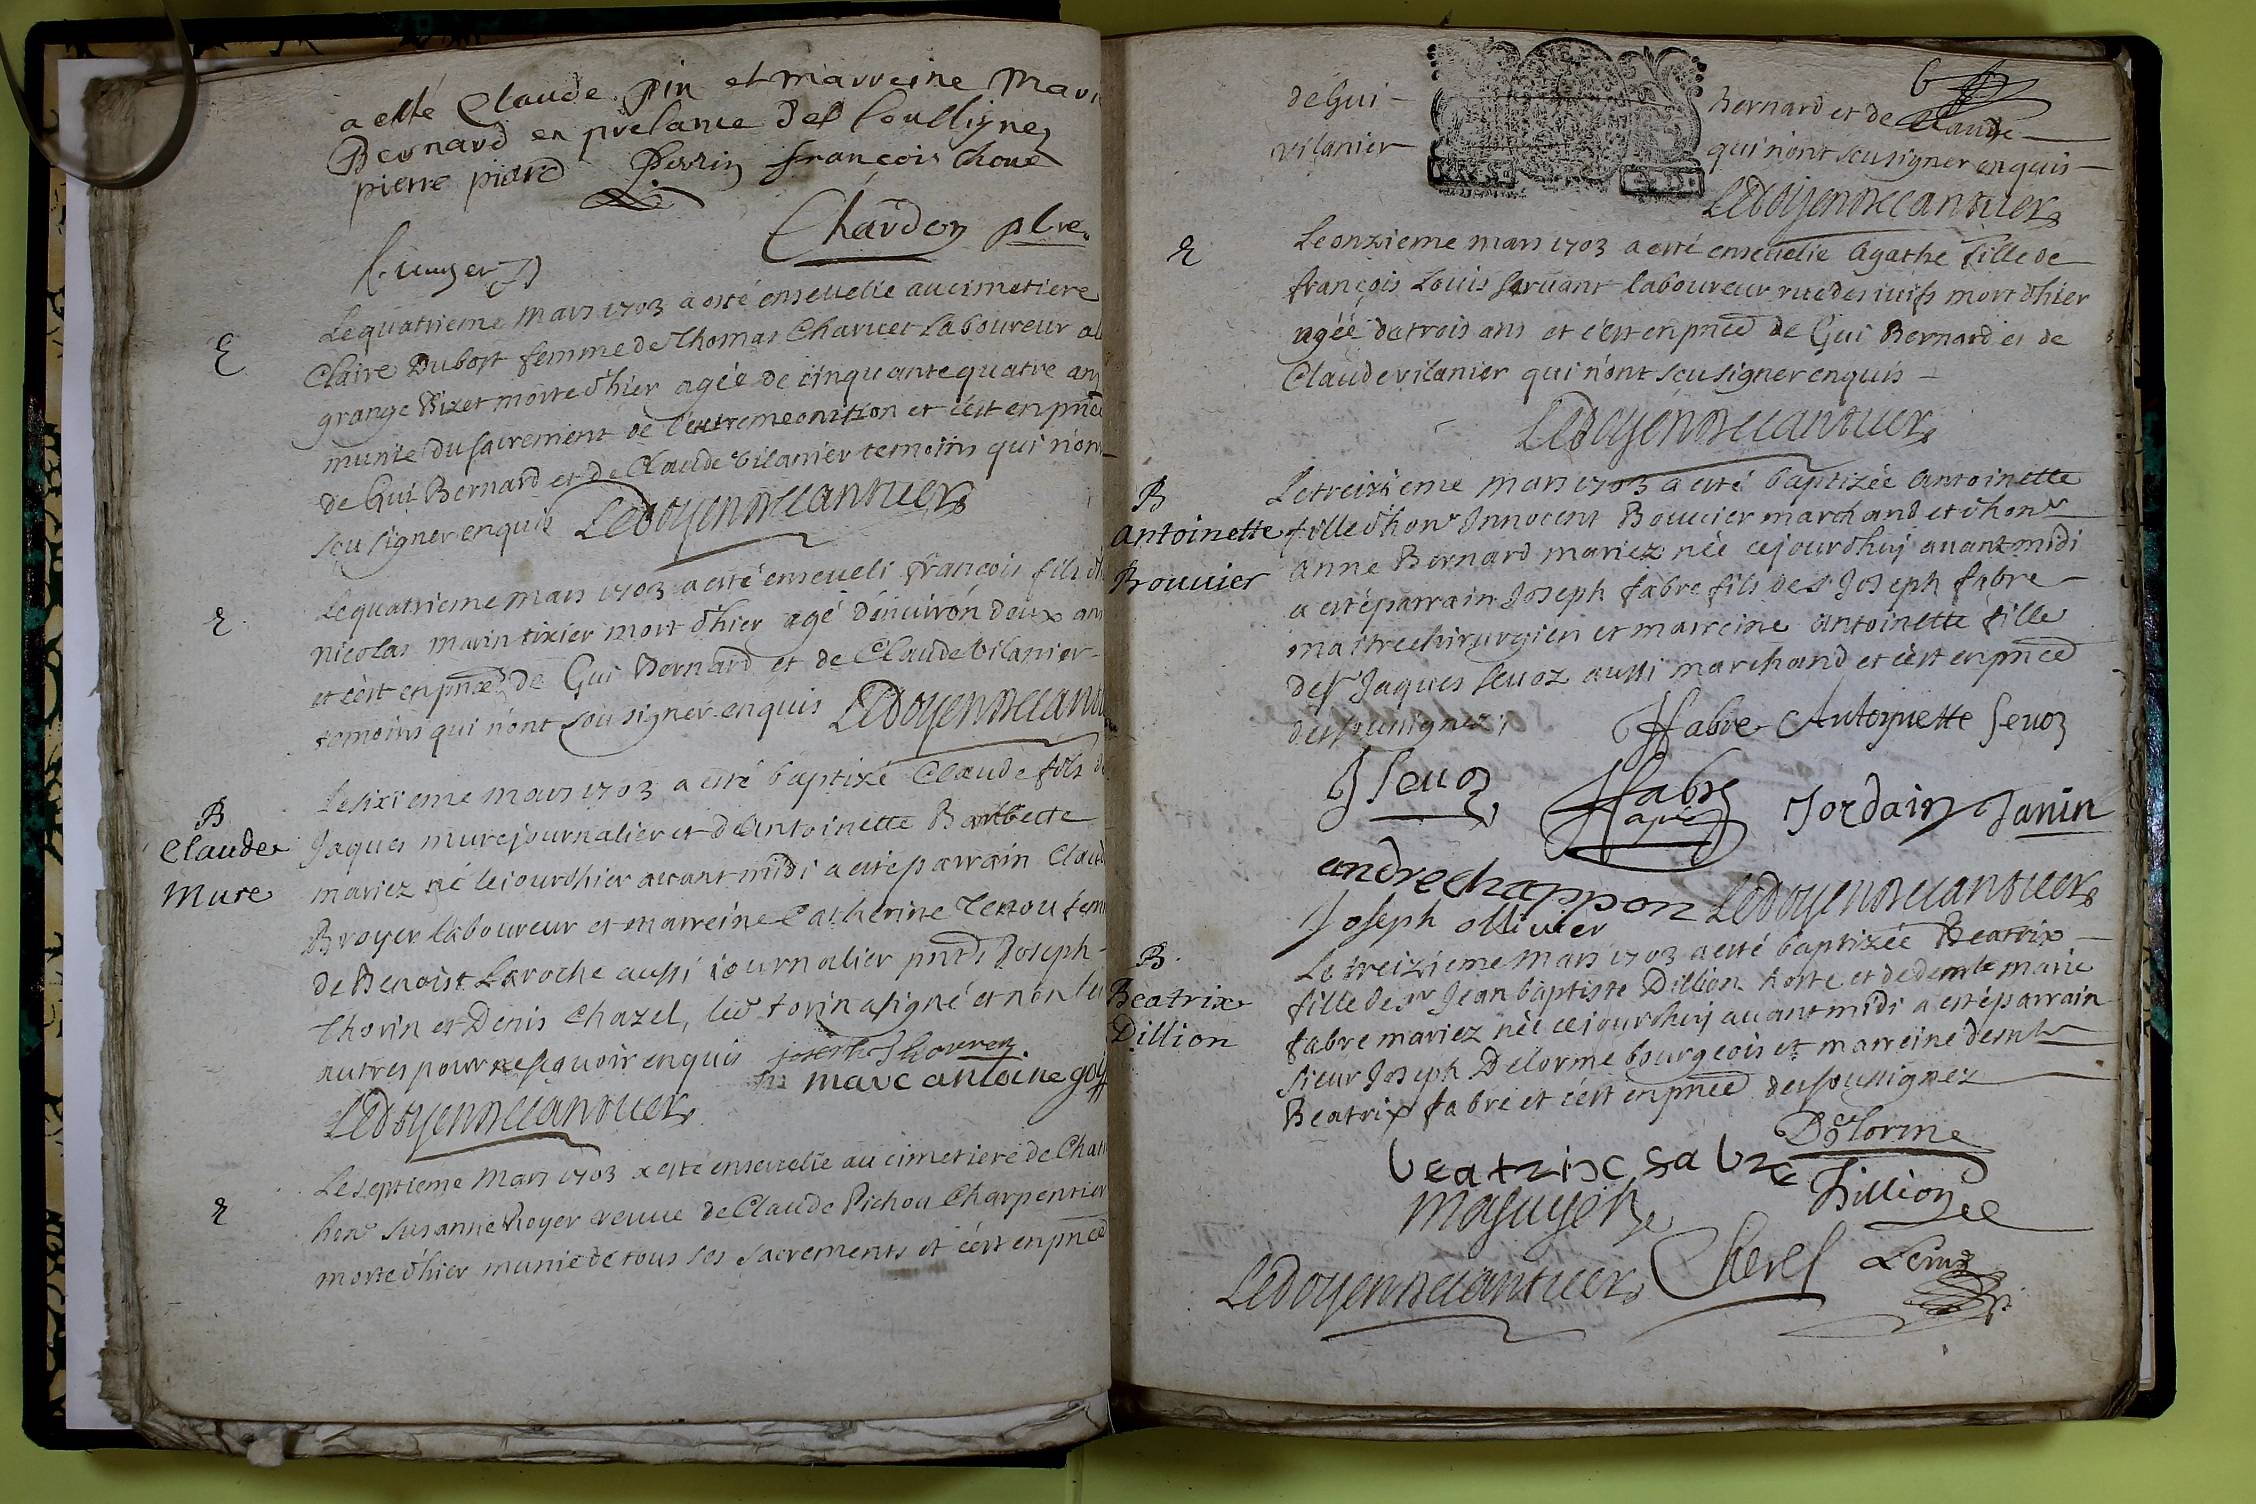 a esté Claude pin et marreine Mari
Bernard en presance des soussignez
pierre piard Perrin françois Choue
Chardon pbre
E
Le quatrieme mars 1703 a esté ensevelie au cimetiere
Claire Dubost femme de Thomas Charvet Laboureur a la
grange Bizet morte d'hier agée de cinquante quatre ans
munie du sacrement de l'extremeonction et c'est en pnce
de Gui Bernard et de Claude vilanier temoins qui n'ont
sçu signer enquis Ledoyen de Cantuer
E
Le quatrieme mars 1703 a esté enseveli françois fils d'h
nicolas marin tixier mort d'hier agé d'environ deux ans
et c'est en pnce de Gui Bernard et de Claude vilanier
temoins qui n'ont sçu signer enquis Ledoyen de Cantu
Le sixieme mars 1703 a esté baptizé Claude fils de
B
Claude
Mure
Jaques mure journalier et d'Antoinette Barbecte
mariez né le jour d'hier avant midi a esté parrain Claude
Broyer laboureur et marreine Catherine Tenou fem
de Benoist Laroche aussi journalier pnts Joseph
Thorin et Denis Chazel, led torin a signé et non les
autres pour ne sçavoir enquis joseph Thorren
marc antoine goy
Ledoyen de Cantuer
E
Le septieme Mars 1703 a esté ensevelie au cimetiere de Cha
hon Susanne Royer veuve de Claude Pichon Charpentier
morte d'hier munie de tous ses sacrements et c'est en pnce
6
de Gui - Bernard et de Claude
vilanier qui n'ont sçu signer enquis
Ledoyen de Cantuer
E
Le onzieme mars 1703 a esté ensevelie Agathe fille de
françois Louis servant laboureur rue des iuifs mort d'hier
agéé de trois ans et c'est en pnce de Gui Bernard et de
Claude vilanier qui n'ont sçeu signer enquis
Ledoyen de Cantuer
B
Antoinette
Bouvier
Le treizieme Mars 1703 a esté baptizée Antoinette
fille d'hon Innocent Bouvier marchand et d'hon
Anne Bernard mariez née cejourd'huy avant midi
a esté parrain Joseph fabre fils de sr Joseph fabre
maitre chirurgien et marreine Antoinette fille
de sr Jaques Sevoz aussi marchand et c'est en pnce
des soussignez J fabre Antoynette Sevoz
J Sevoz J fabre Jordain Janin
andre chappon Ledoyen de Cantuer
Joseph ollivier
B
Beatrix
Dillion
Le treizieme Mars 1703 a esté baptizée Beatrix
fille de sr Jean baptiste Dillion hoste et de demlle marie
fabre mariez née cejourd'huy avant midi a esté parrain
sieur Joseph Delorme bourgeois et marreine demlle
Beatrix fabre et c'est en pnce des soussignez
Delorme
beatrixc fabre Dillion
Masuyer
Ledoyen de Cantuer Cherel